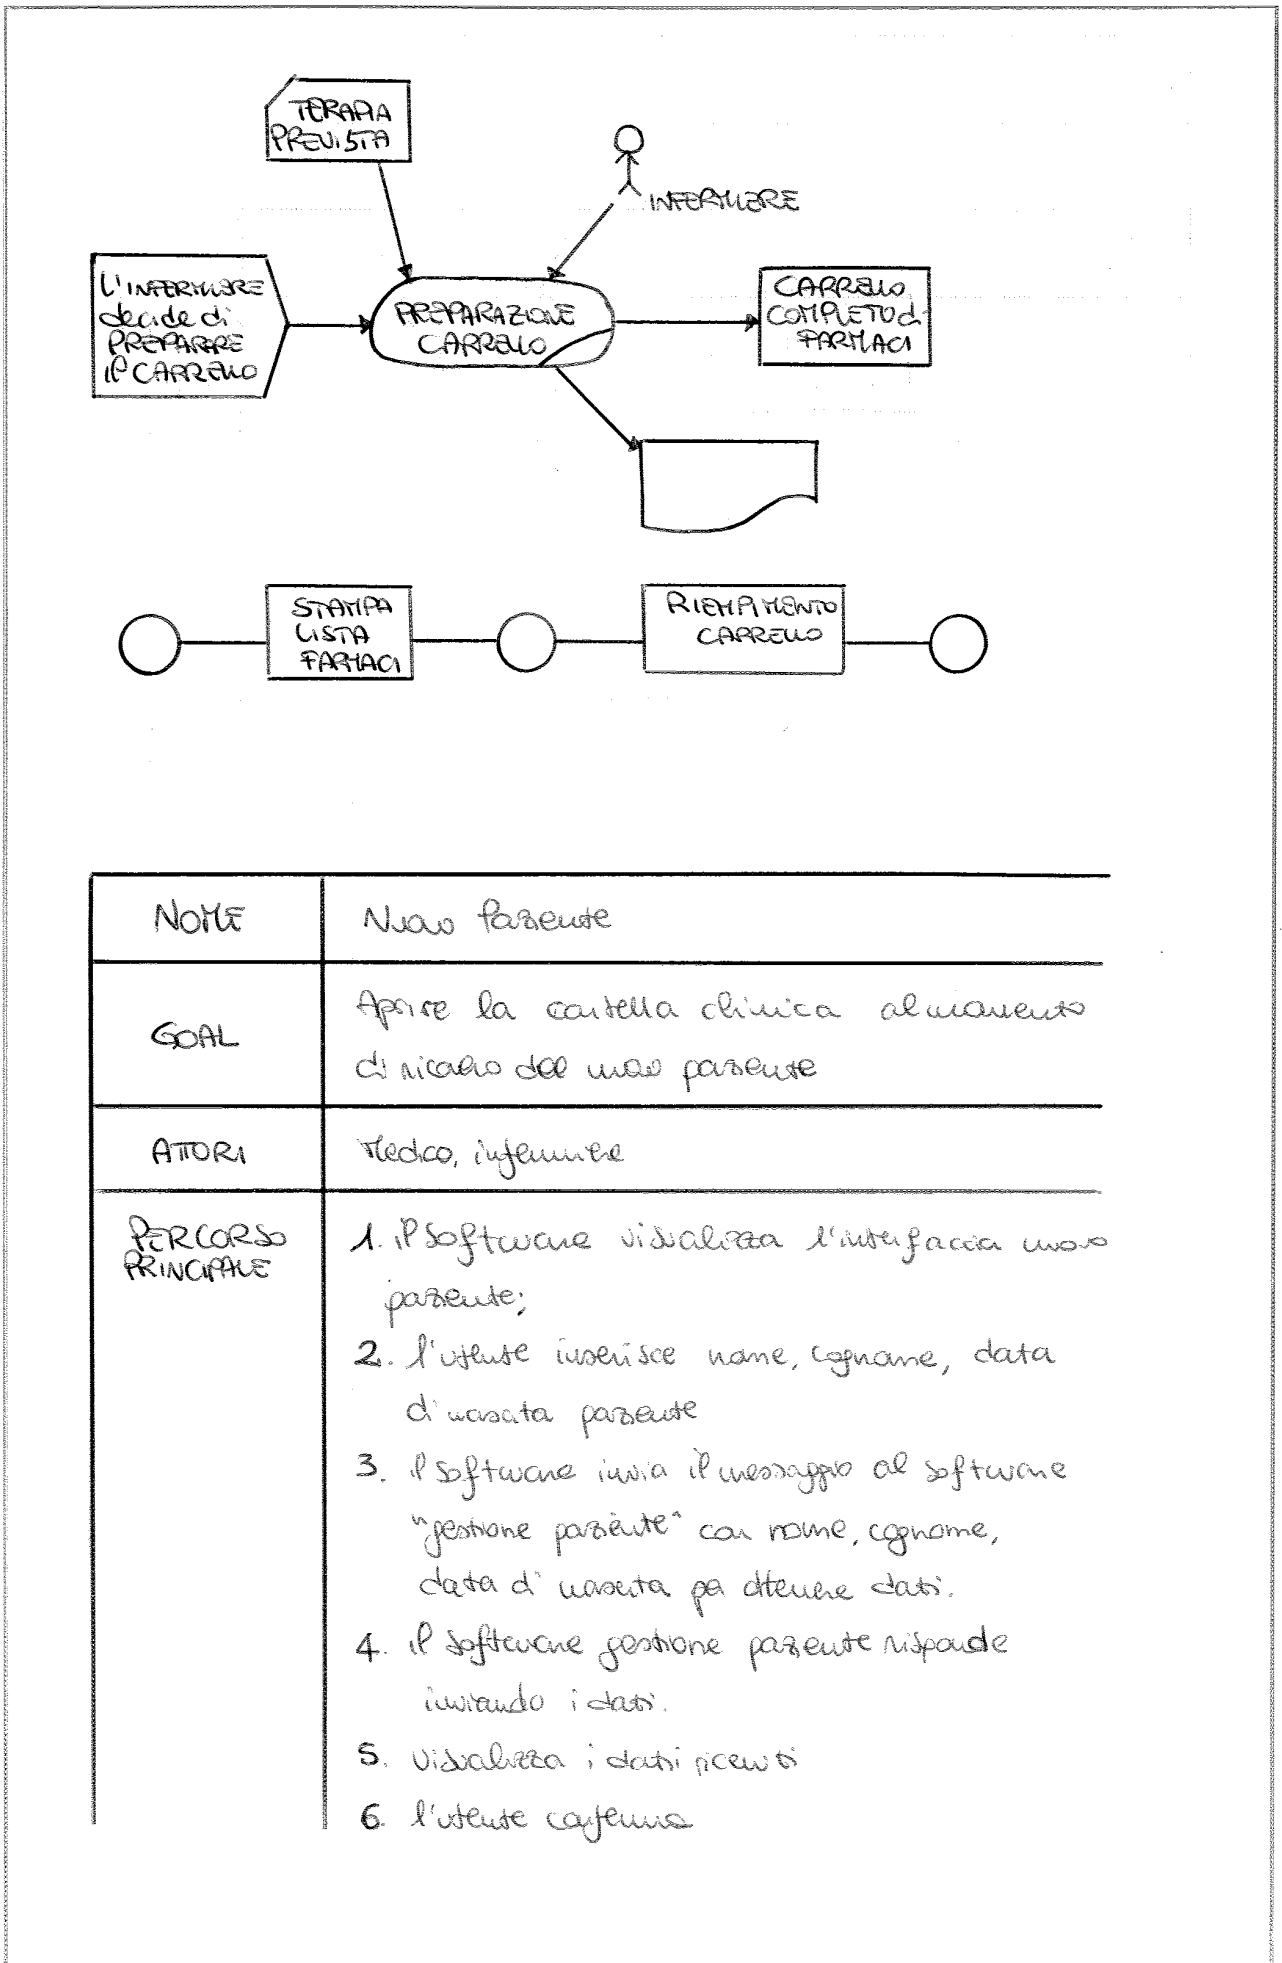 TERAPIA
PREVISTA
INFERMIERE
L'INFERMIERE
decide di
PREPARARE
il CARRELLO
PREPARAZIONE
CARRELLO
CARRELLO
COMPLETO di
FARMACI
STAMPA
LISTA
FARMACI
RIEMPIMENTO
CARRELLO
NOME
Nuovo Paziente
GOAL
Aprire la cartella clinica al momento
di ricovero del nuovo paziente
ATTORI
Medico, infermiere
PERCORSO
PRINCIPALE
1. il software visualizza l'interfaccia nuovo
paziente;
2. l'utente inserisce nome, cognome, data
di nascita paziente
3. il software invia il messaggio al software
"gestione paziente" con nome, cognome,
data di nascita per ottenere dati.
4. il software gestione paziente risponde
inviando i dati.
5. visualizza i dati ricevuti
6. l'utente conferma